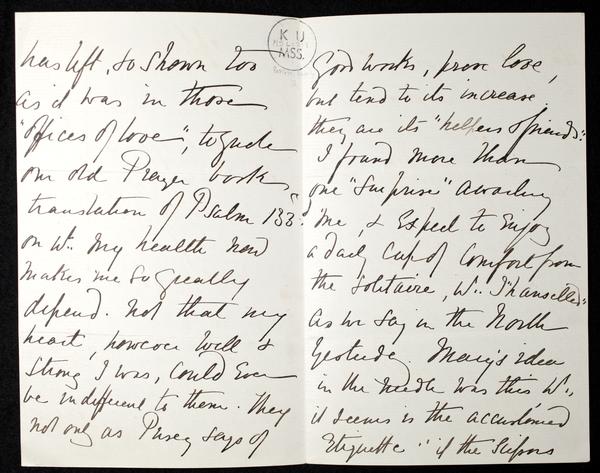 K U
MSS.
has left, so shown too
as it was in those
"offices of love", to quote
our old Prayer books
translation of Psalm 133.
on wh. my health now
makes me so greatly
depend. Not that my
heart, however well &
strong I was, could ever
be indifferent to them. They
not only as Pusey says of
Good works, prove love,
but tend to its increase.
they are its "helpers & friends".
I found more than
one "surprise" awaiting
me, & expect to enjoy
a daily cup of comfort from
the solitaire, wh. I "hanselled"
as we say in the North
Yesterday. Mary's idea
in the needle was this wh.,
it seems is the accustomed
Etiquette "if the scissors